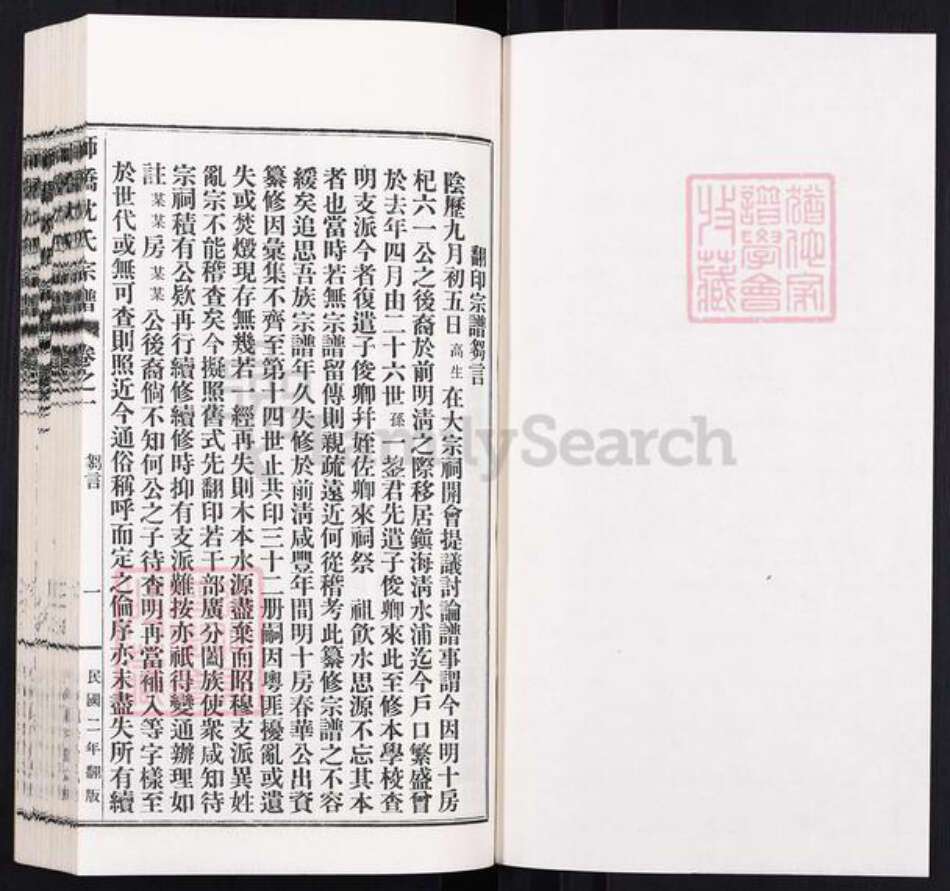 翻印宗譜芻言
陰歷九月初五日高生在大宗祠開會提議討論譜事謂今因明十房
杞六一公之後裔於前明清之際移居鎮海清水浦迄今戶口繁盛曾
於去年四月由二十六世孫一鋆君先遣子俊卿來此至修本學校查
明支派今者復遣子俊卿并姪佐卿來祠祭 祖飲水思源不忘其本
者也當時若無宗譜留傳則親疏遠近何從稽考此纂修宗譜之不容
緩矣追思吾族宗譜年久失修於前清咸豐年間明十房春華公出資
纂修因彙集不齊至第十四世止共印三十二册嗣因粵匪擾亂或遺
失或焚燬現存無幾若一經再失則木本水源盡棄而昭穆支派異姓
亂宗不能稽查矣今擬照舊式先翻印若干部廣分闔族使衆咸知待
宗祠積有公欵再行續修續修時抑有支派難按亦祇得變通辦理如
註某某房某某公後裔倘不知何公之子待查明再當補入等字樣至
於世代或無可查則照近今通俗稱呼而定之倫序亦未盡失所有續
師橋沈氏宗譜 卷之一
芻言
一
民國二年翻版
猶他家
譜學會
收藏
FamilySearch